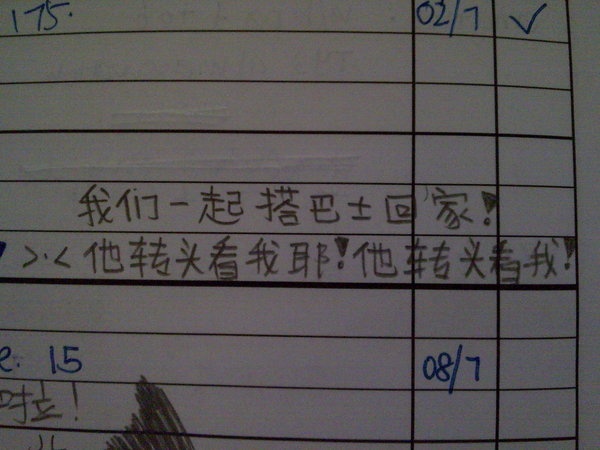 175. 02/7 ✓
我们一起搭巴士回家!
>.< 他转头看我耶!他转头看我!
e. 15 08/7
啦!